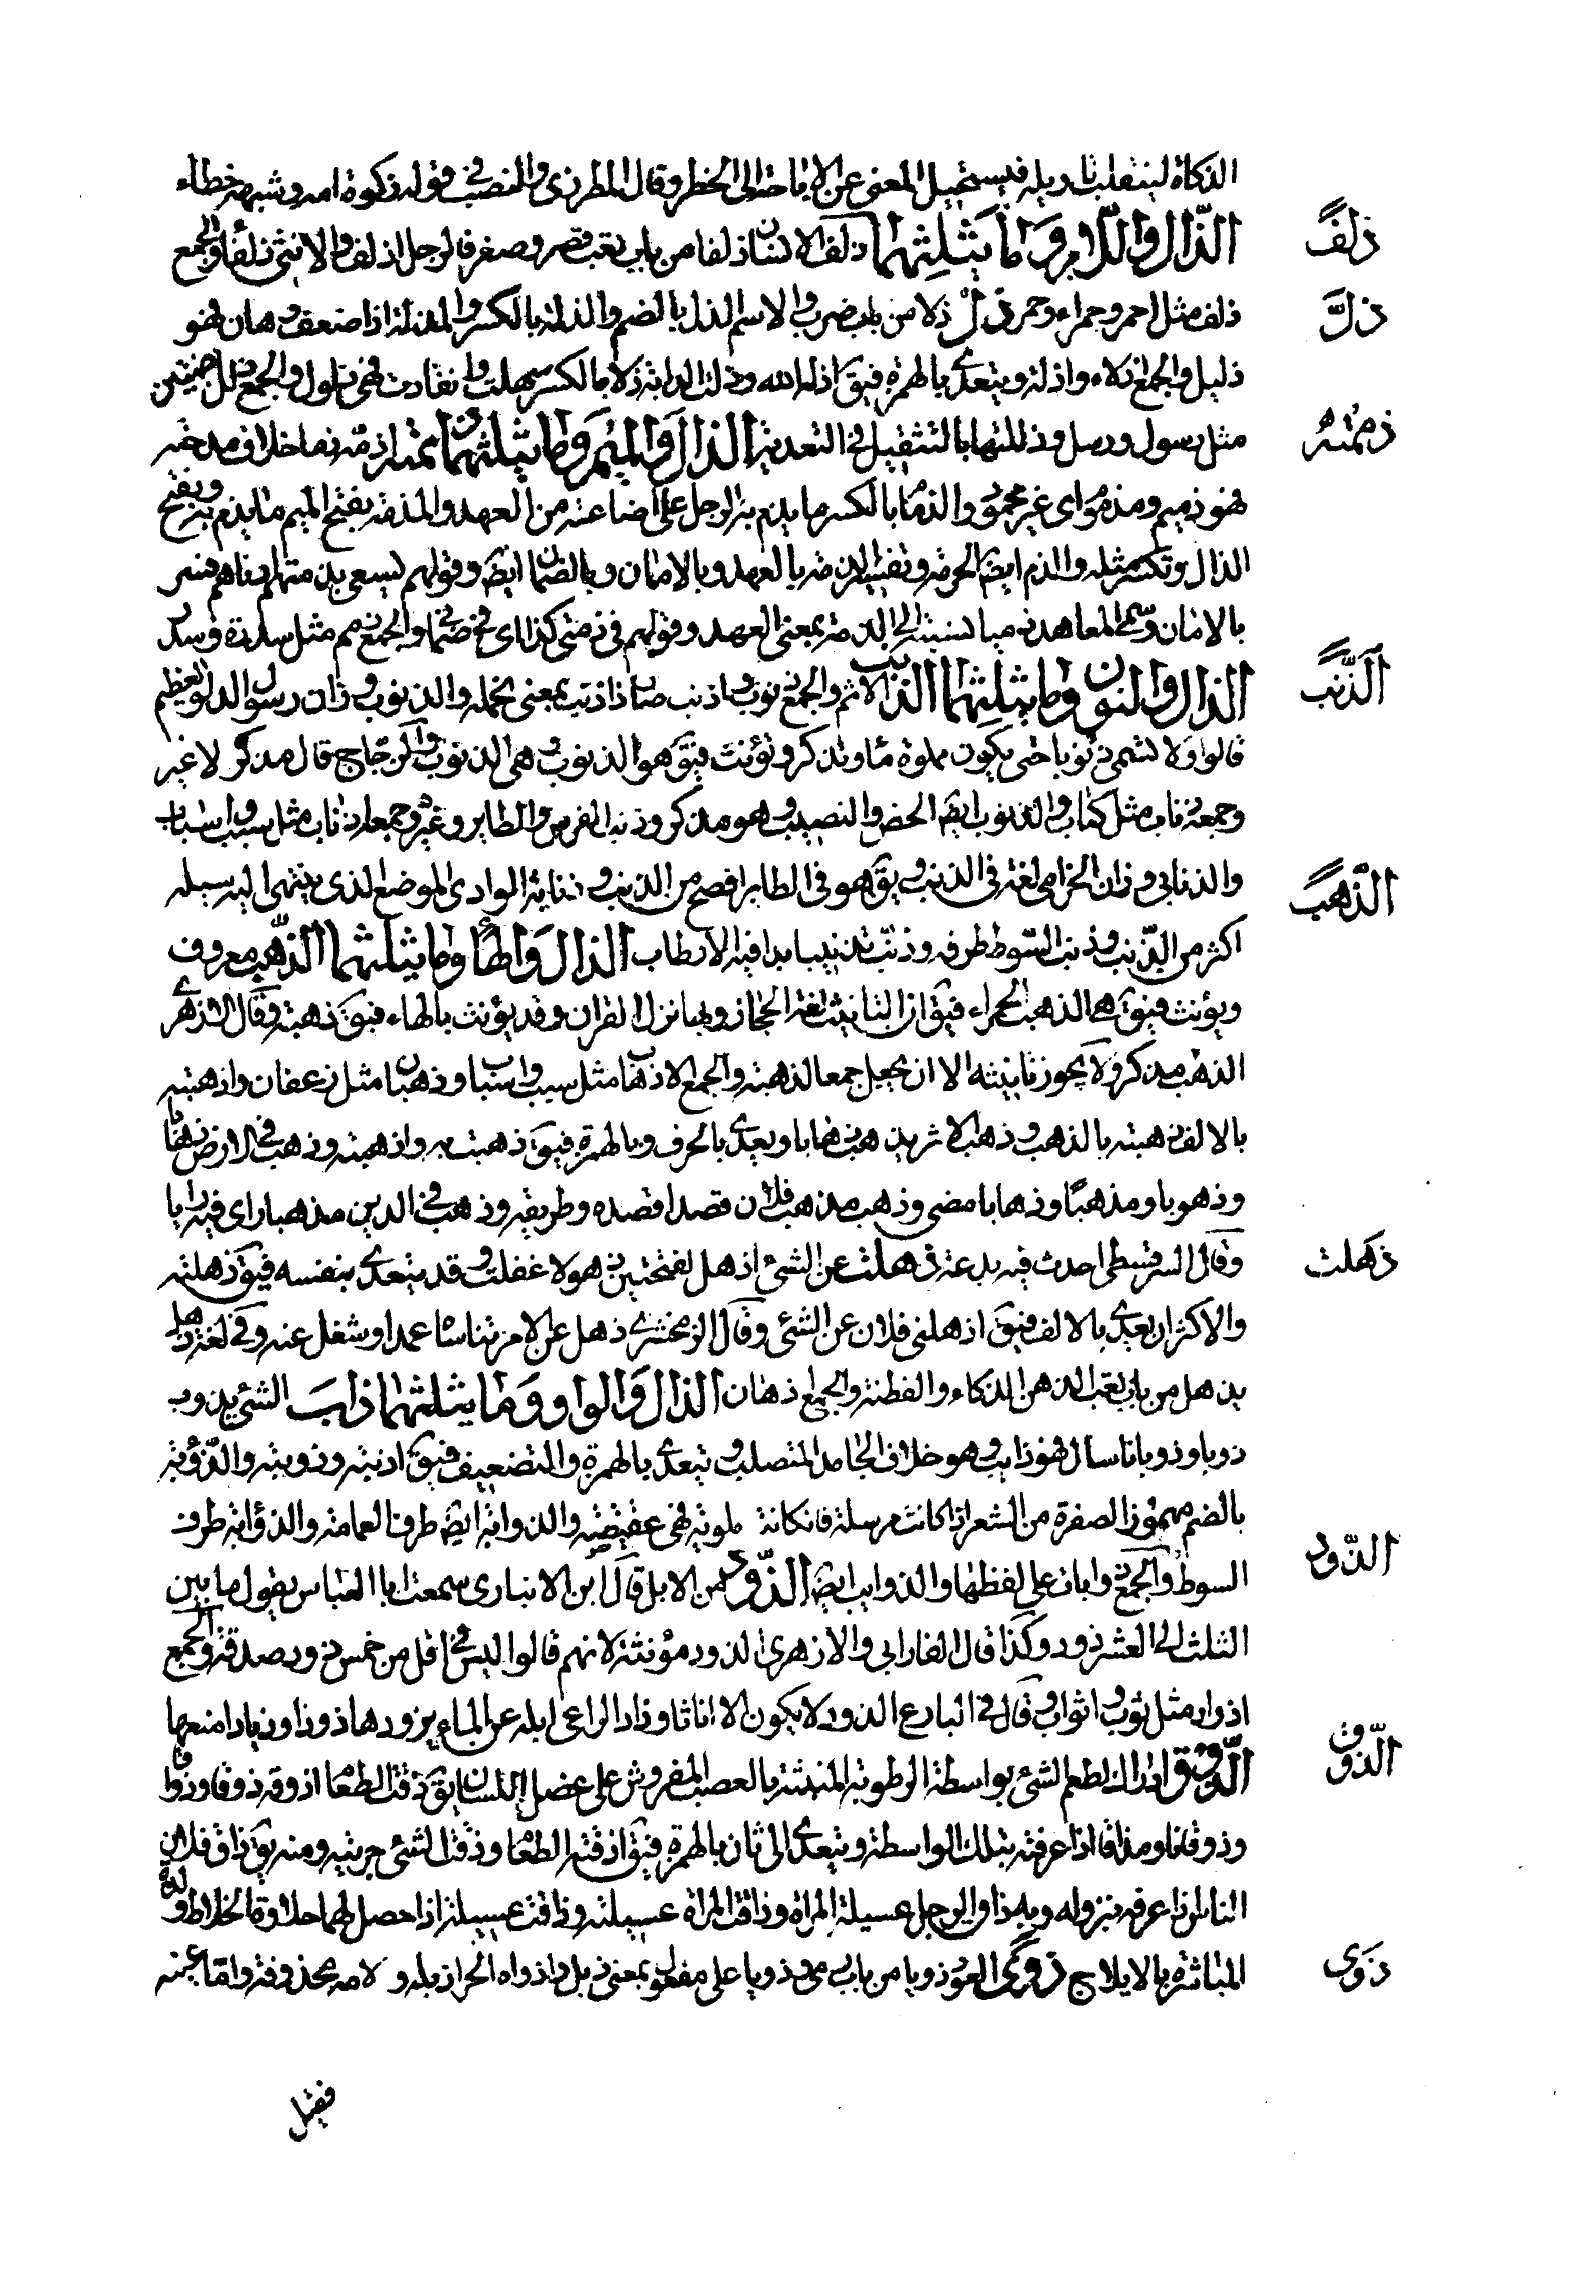 الذكاة لينقلب تاويله فيستحيل المعنى عن الاباحة الى الخطر وقال المطرزى والنصب فى قوله ذكوة امه وشبهه خطاء
ذلف
الذال واللام وما يثلثهما ذلف الانسان ذلفا من باب تعب قصر وصغر فالرجل اذلف والانثى ذلفا والجمع
ذل
ذلف مثل احمر وحمراء وحمر ذل ذلا من باب ضرب والاسم الذل بالضم والذلة بالكسر والمذلة اذا ضعف وهان فهو
ذليل والجمع اذلاء واذلة ويتعدى بالهمزة فيق اذله الله وذلت الدابة ذلا بالكسر سهلت وانقادت فهى ذلول والجمع ذلل بضمتين
ذممته
مثل رسول ورسل وذللتها بالتثقيل فى التعدية الذال والميم وما يثلثهما ذممته اذمه ذما خلاف مدحته
فهو ذميم ومذموم اى غير محمود والذمام بالكسر ما يذم به الرجل على اضاعته من العهد والمذمة بفتح الميم ما يذم به وبفتح
الذال وتكسر مثله والذم ايض الحرمة وتفسر الذمة بالعهد وبالامان وبالضمان ايض وقولهم يسعى بذمتهم ادناهم فسر
بالامان وسمى المعاهد ذميا نسبة الى الذمة بمعنى العهد وقولهم فى ذمتى كذا اى فى ضمانى والجمع ذمم مثل سدرة وسدر
الذنب
الذال والنون وما يثلثهما الذنب الاثم والجمع ذنوب واذنب صار ذا ذنب بمعنى تحمله والذنوب وزان رسول الدلو العظيم
قالوا ولا تسمى ذنوبا حتى يكون مملوة ماء وتذكر وتؤنث فيق هو الذنوب وهى الذنوب والزجاج قال مذكر لا غير
وجمعه ذناب مثل كتاب والذنوب ايض الحض والنصيب وهو مذكر وذنب الفرس والطاير وغيره جمعه اذناب مثل سبب واسباب
والذنابى وزان الخزامى لغة فى الذنب ويق هو فى الطاير افصح من الذنب وذنابة الوادى الموضع الذى ينتهى اليه سيله
الذهب
اكثر من الذنب وذنب السوط طرفه وذنبت تذنيبا بدا فيه الارطاب الذال والهاء وما يثلثهما الذهب معروف
ويؤنث فيق هى الذهب الحمراء فيق ان التانيث لغة الحجاز وبها نزل القران وقد يؤنث بالهاء فيق ذهبة وقال الازهرى
الذهب مذكر ولا يجوز تانيثه الا ان يجعل جمعا لذهبة والجمع الاذهاب مثل سبب واسباب وذهبان مثل زعفان واذهبته
بالالف ذهبته بالذهب وذهب الاثر يذهب ذهابا ويعدى بالحرف وبالهمزة فيق ذهبت به واذهبته وذهب فى الارض ذهابا
وذهوبا ومذهبا وذهابا مضى وذهب مذهب فلان قصد قصده وطريقه وذهب فى الدين مذهبا راى فيه رايا
ذهلت
وقال السرقسطى احدث فيه بدعة ذهلت عن الشئ اذهل بفتحتين ذهولا غفلت وقد يتعدى بنفسه فيق ذهلته
والاكثر ان يعدى بالالف فيق اذهلنى فلان عن الشئ وقال الزمخشرى ذهل عن الامر تناساه عمدا وشغل عنه وفى لغة ذهل
يذهل من باب تعب الذهن الذكاء والفطنة والجمع اذهان الذال والواو وما يثلثهما ذاب الشئ يذوب
ذوبا وذوبانا سال فهو ذايب وهو خلاف الجامد المتصلب ويتعدى بالهمزة والتضعيف فيق اذبته وذوبته والذؤبة
بالضم مهموز الضفرة من الشعر اذا كانت مرسلة فان كانت ملوية فهى عقيصة والذوابة ايض طرف العمامة والذؤابة طرف
الذود
السوط والجمع ذوابات على لفظها والذوايب ايض الذود من الابل قال ابن الانبارى سمعت ابا العباس يقول ما بين
الثلث الى العشر ذود وكذا قال الفارابى والازهرى الذود مؤنثة لانهم قالوا ليس فى اقل من خمس ذود صدقة والجمع
اذواد مثل ثوب واثواب وقال فى البارع الذود لا يكون الا اناثا وذاد الراعى ابله عن الماء يزودها ذودا وذيادا منعها
الذوق
الذوق ادراك لطعم الشئ بواسطة الرطوبة المنبثة بالعصب المفروش على عضل اللسان يق ذقت الطعام اذوقه ذوقا وذواقا
وذوقانا ومذاقا اذا عرفته بتلك الواسطة ويتعدى الى ثان بالهمزة فيق اذقته الطعام وذقت الشئ جربته ومنه يق ذاق فلان
الناس اذا عرفه بنزوله به وذاق الرجل عسيلة المراة وذاقت المراة عسيلته وذاقت عسيلته اذا حصل لهما حلاوة الخلاط ولذة
ذوى
المباشرة بالايلاج ذوى العود ذويا من باب رمى وذويا على مفعول بمعنى ذبل واذواه الحر اذبله ولامه محذوفة واما عينه
فقيل